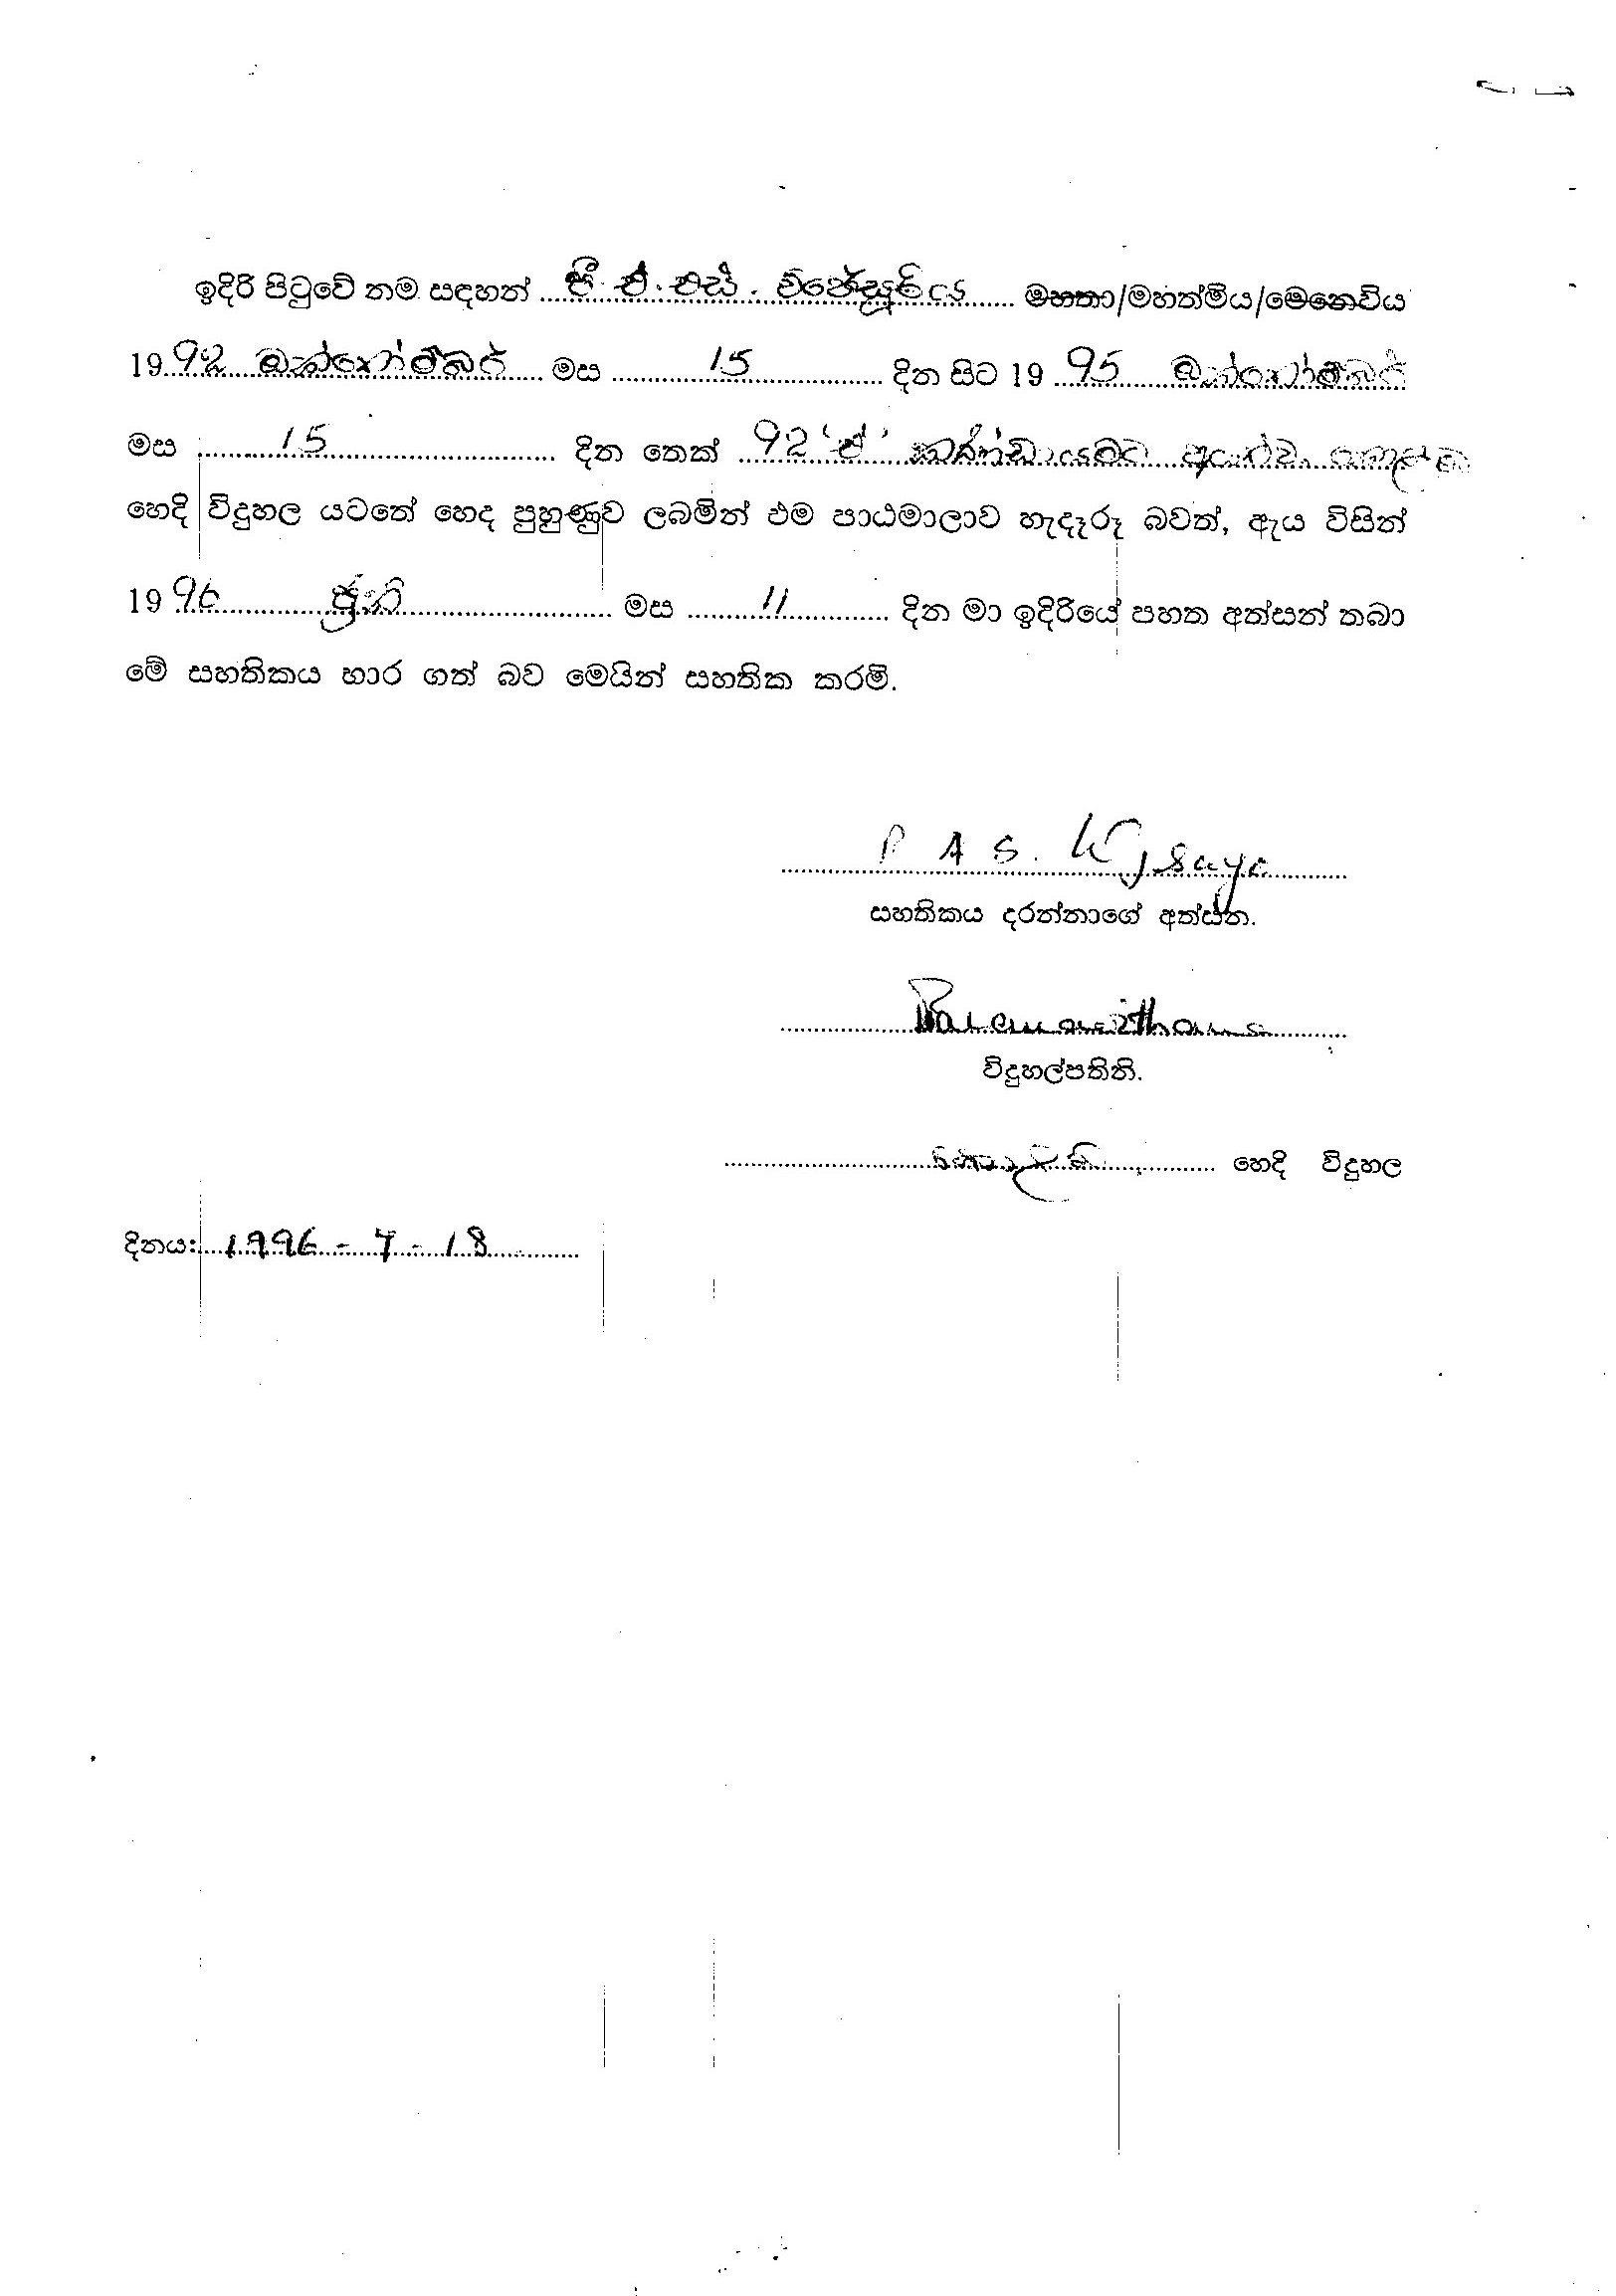 ඉදිරි පිටුවේ නම සඳහන් පී. ඒ. එස්. විජේසූරිය මහතා/මහත්මිය/මෙනෙවිය
1992 ඔක්තෝම්බර් මස 15 දින සිට 1995 ඔක්තෝම්බර්
මස 15 දින තෙක් 92 'ඒ' කණ්ඩායමට
හෙදි විදුහල යටතේ හෙද පුහුණුව ලබමින් එම පාඨමාලාව හැදෑරූ බවත්, ඇය විසින්
1996 ජූනි මස 11 දින මා ඉදිරියේ පහත අත්සන් තබා
මේ සහතිකය භාර ගත් බව මෙයින් සහතික කරමි.
P A S.
සහතිකය දරන්නාගේ අත්සන.
විදුහල්පතිනි.
හෙදි විදුහල
දිනය: 1996 - 7 - 18